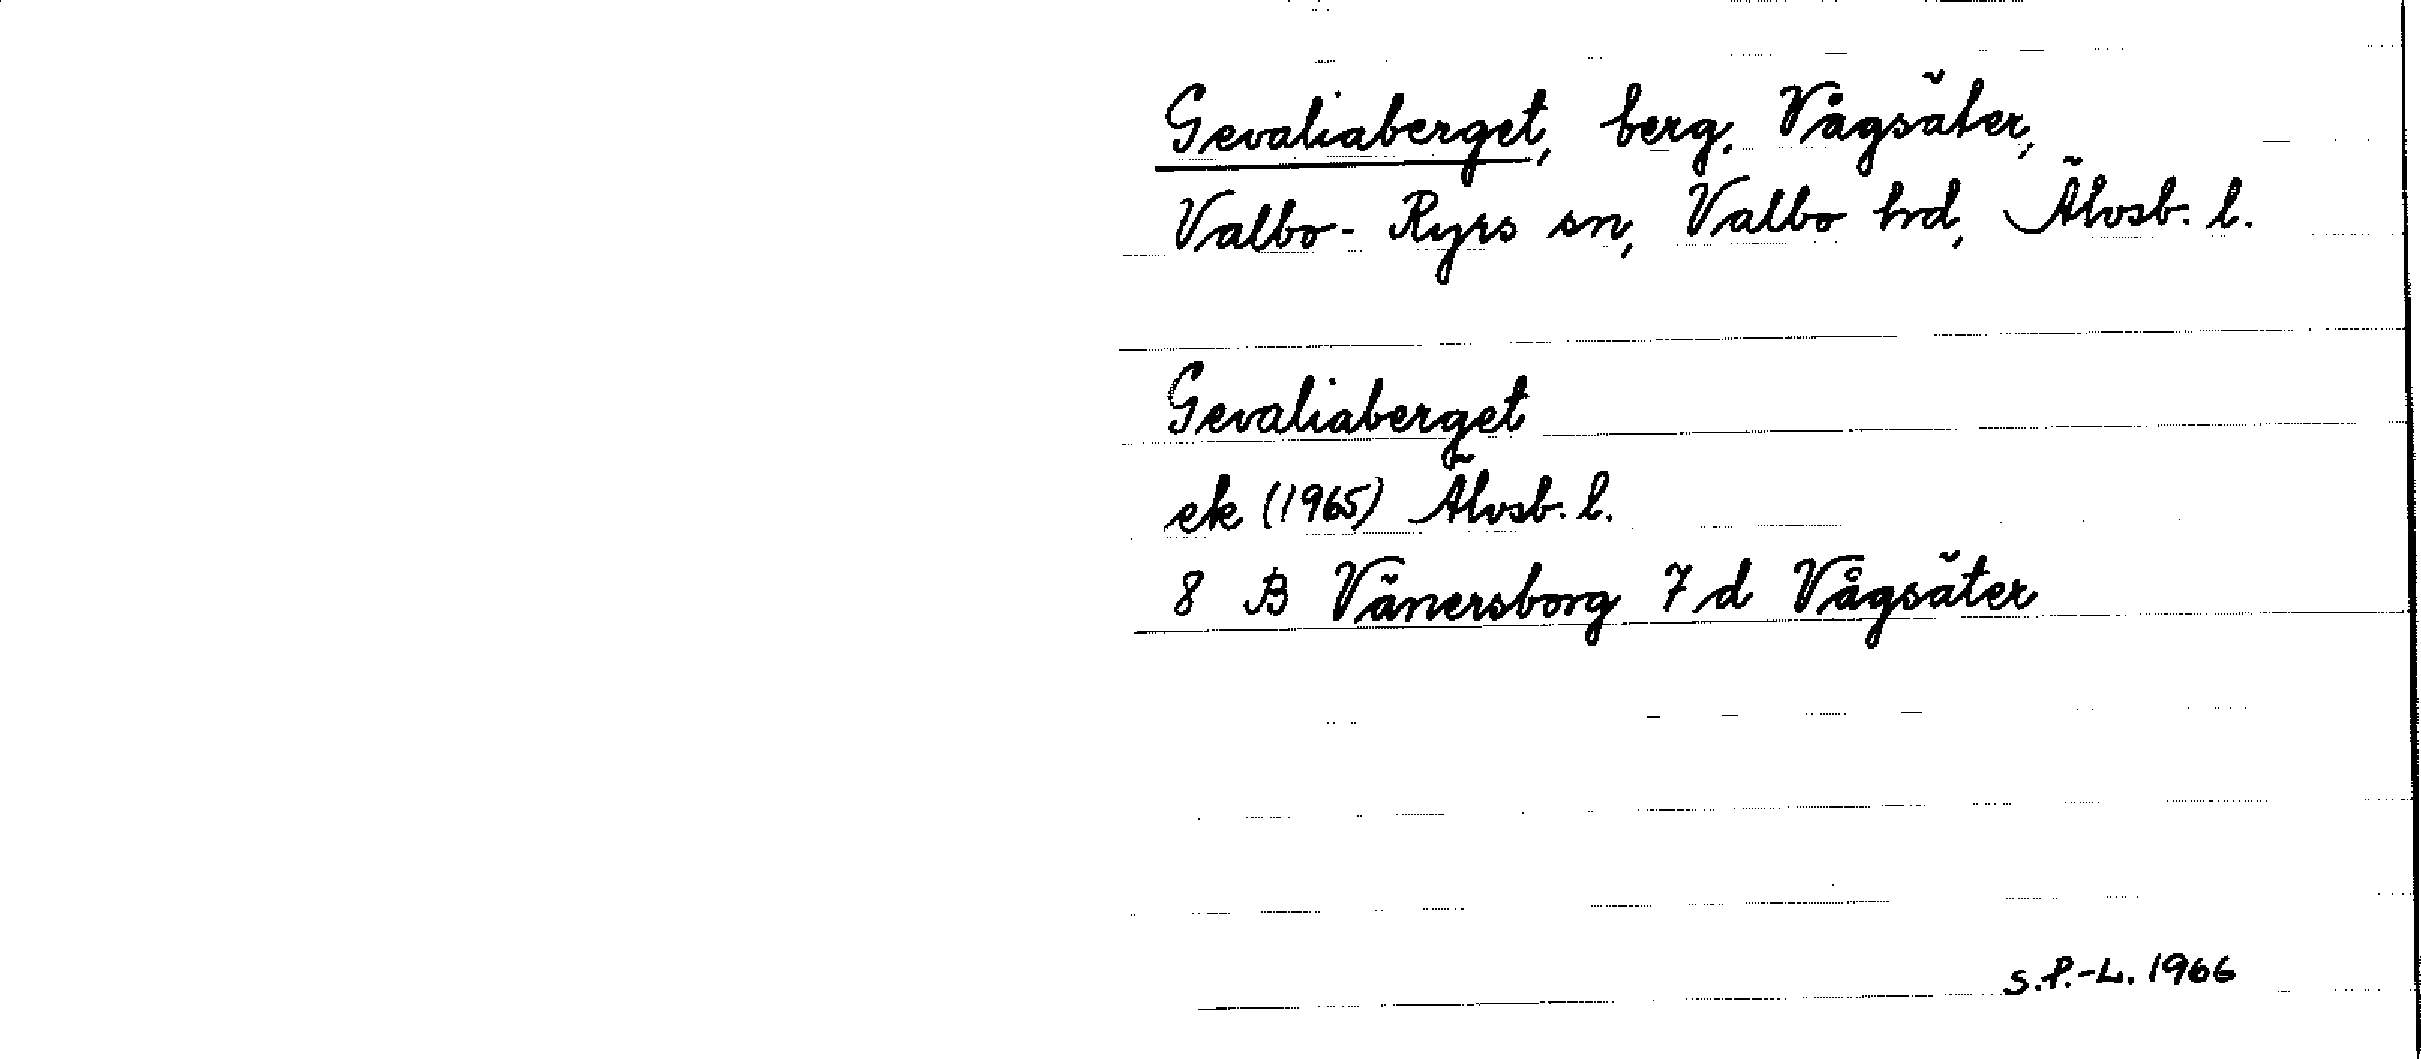 Gevaliaberget, berg, Vågsäter,
Valbo-Ryrs sn, Valbo hd, Älvsb. l.
Gevaliaberget
ek (1965) Älvsb. l.
8 B Vänersborg 7 d Vågsäter
S.P.-L. 1966